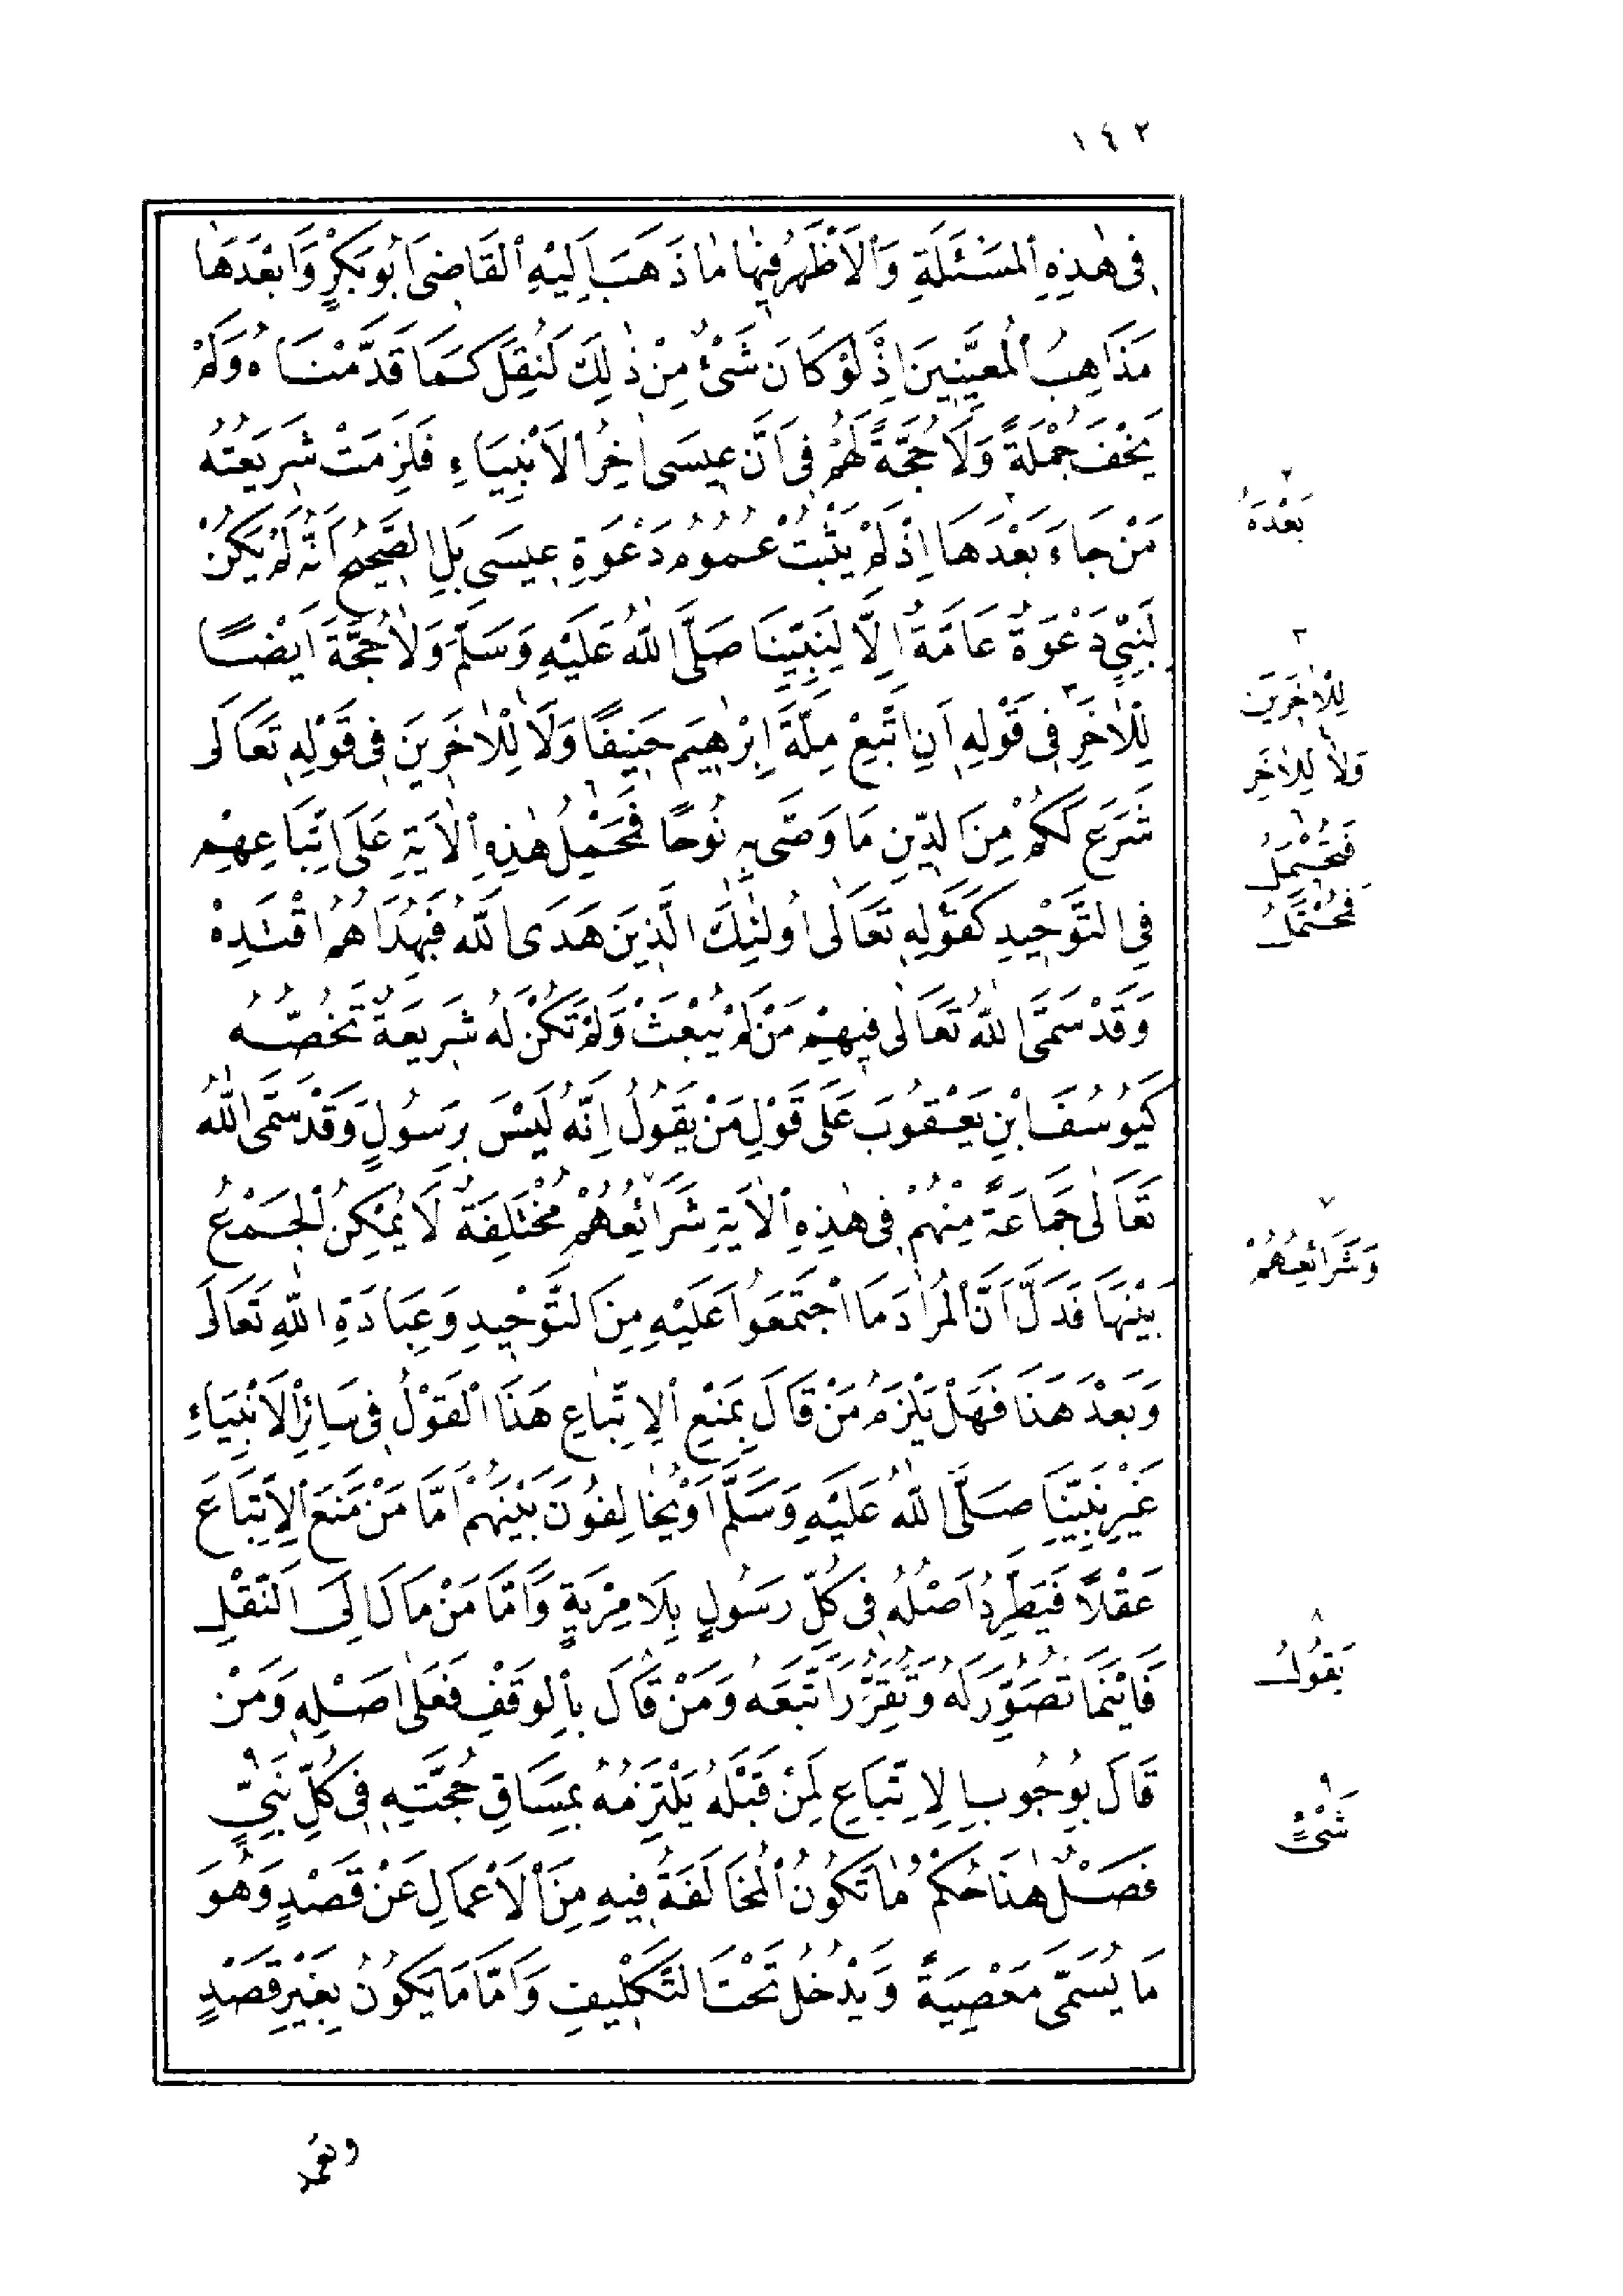 ١٤٢
فِى هٰذِهِ الْمَسْئَلَةِ وَالْاَظْهَرُ فِيهَا مَا ذَهَبَ اِلَيْهِ الْقَاضِى اَبُو بَكْرٍ وَاَبْعَدُهَا
مَذَاهِبُ الْمُعَيِّنِينَ اِذْ لَوْ كَانَ شَىْءٌ مِنْ ذٰلِكَ لَنُقِلَ كَمَا قَدَّمْنَاهُ وَلَمْ
يَخْفَ جُمْلَةً وَلَا حُجَّةَ لَهُمْ فِى اَنَّ عِيسَى اٰخِرُ الْاَنْبِيَاءِ فَلَزِمَتْ شَرِيعَتُهُ
مَنْ جَاءَ بَعْدَهَا اِذْ لَمْ يَثْبُتْ عُمُومُ دَعْوَةِ عِيسَى بَلِ الصَّحِيحُ اَنَّهُ لَمْ يَكُنْ
لِنَبِىٍّ دَعْوَةٌ عَامَّةٌ اِلَّا لِنَبِيِّنَا صَلَّى اللّٰهُ عَلَيْهِ وَسَلَّمَ وَلَا حُجَّةَ اَيْضًا
لِلْاٰخَرِ فِى قَوْلِهِ اَنِ اتَّبِعْ مِلَّةَ اِبْرٰهِيمَ حَنِيفًا وَلَا لِلْاٰخَرِينَ فِى قَوْلِهِ تَعَالَى
شَرَعَ لَكُمْ مِنَ الدِّينِ مَا وَصَّى بِهِ نُوحًا فَحَمْلُ هٰذِهِ الْاٰيَةِ عَلَى اتِّبَاعِهِمْ
فِى التَّوْحِيدِ كَقَوْلِهِ تَعَالٰى اُولٰئِكَ الَّذِينَ هَدَى اللّٰهُ فَبِهُدَاهُمُ اقْتَدِهْ
وَقَدْ سَمَّى اللّٰهُ تَعَالٰى فِيهِمْ مَنْ لَمْ يُبْعَثْ وَلَمْ تَكُنْ لَهُ شَرِيعَةٌ تَخُصُّهُ
كَيُوسُفَ ابْنِ يَعْقُوبَ عَلَى قَوْلِ مَنْ يَقُولُ اِنَّهُ لَيْسَ بِرَسُولٍ وَقَدْ سَمَّى اللّٰهُ
تَعَالٰى جَمَاعَةً مِنْهُمْ فِى هٰذِهِ الْاٰيَةِ شَرَائِعُهُمْ مُخْتَلِفَةٌ لَا يُمْكِنُ الْجَمْعُ
بَيْنَهَا فَدَلَّ اَنَّ الْمُرَادَ مَا اجْتَمَعُوا عَلَيْهِ مِنَ التَّوْحِيدِ وَعِبَادَةِ اللّٰهِ تَعَالَى
وَبَعْدَ هَذَا فَهَلْ يَلْزَمُ مَنْ قَالَ بِمَنْعِ الْاِتِّبَاعِ هَذَا الْقَوْلُ فِى سَائِرِ الْاَنْبِيَاءِ
غَيْرِ نَبِيِّنَا صَلَّى اللّٰهُ عَلَيْهِ وَسَلَّمَ اَوْ يُخَالِفُونَ بَيْنَهُمْ اَمَّا مَنْ مَنَعَ الْاِتِّبَاعَ
عَقْلًا فَيَطَّرِدُ اَصْلُهُ فِى كُلِّ رَسُولٍ بِلَا مِرْيَةٍ وَاَمَّا مَنْ مَالَ اِلَى النَّقْلِ
فَاَيْنَمَا تُصُوِّرَ لَهُ وَتُقِرِّرَ اتَّبَعَهُ وَمَنْ قَالَ بِالْوَقْفِ فَعَلٰى اَصْلِهِ وَمَنْ
قَالَ بِوُجُوبِ الْاِتِّبَاعِ لِمَنْ قَبْلَهُ يَلْتَزِمُهُ بِمَسَاقِ حُجَّتِهِ فِى كُلِّ نَبِىٍّ
فَصْلٌ هٰذَا حُكْمُ مَا تَكُونُ الْمُخَالَفَةُ فِيهِ مِنَ الْاَعْمَالِ عَنْ قَصْدٍ وَهُوَ
مَا يُسَمَّى مَعْصِيَةً وَيَدْخُلُ تَحْتَ التَّكْلِيفِ وَاَمَّا مَا يَكُونُ بِغَيْرِ قَصْدٍ
٢
بَعْدَهُ
٣
لِلْاٰخَرِينَ
وَلَا لِلْاٰخَرِ
فَتُحْمَلُ
فَتُحْتَمَلُ
٧
وَشَرَائِعُهُمْ
٨
يَقُولُ
٩
شَىْءٍ